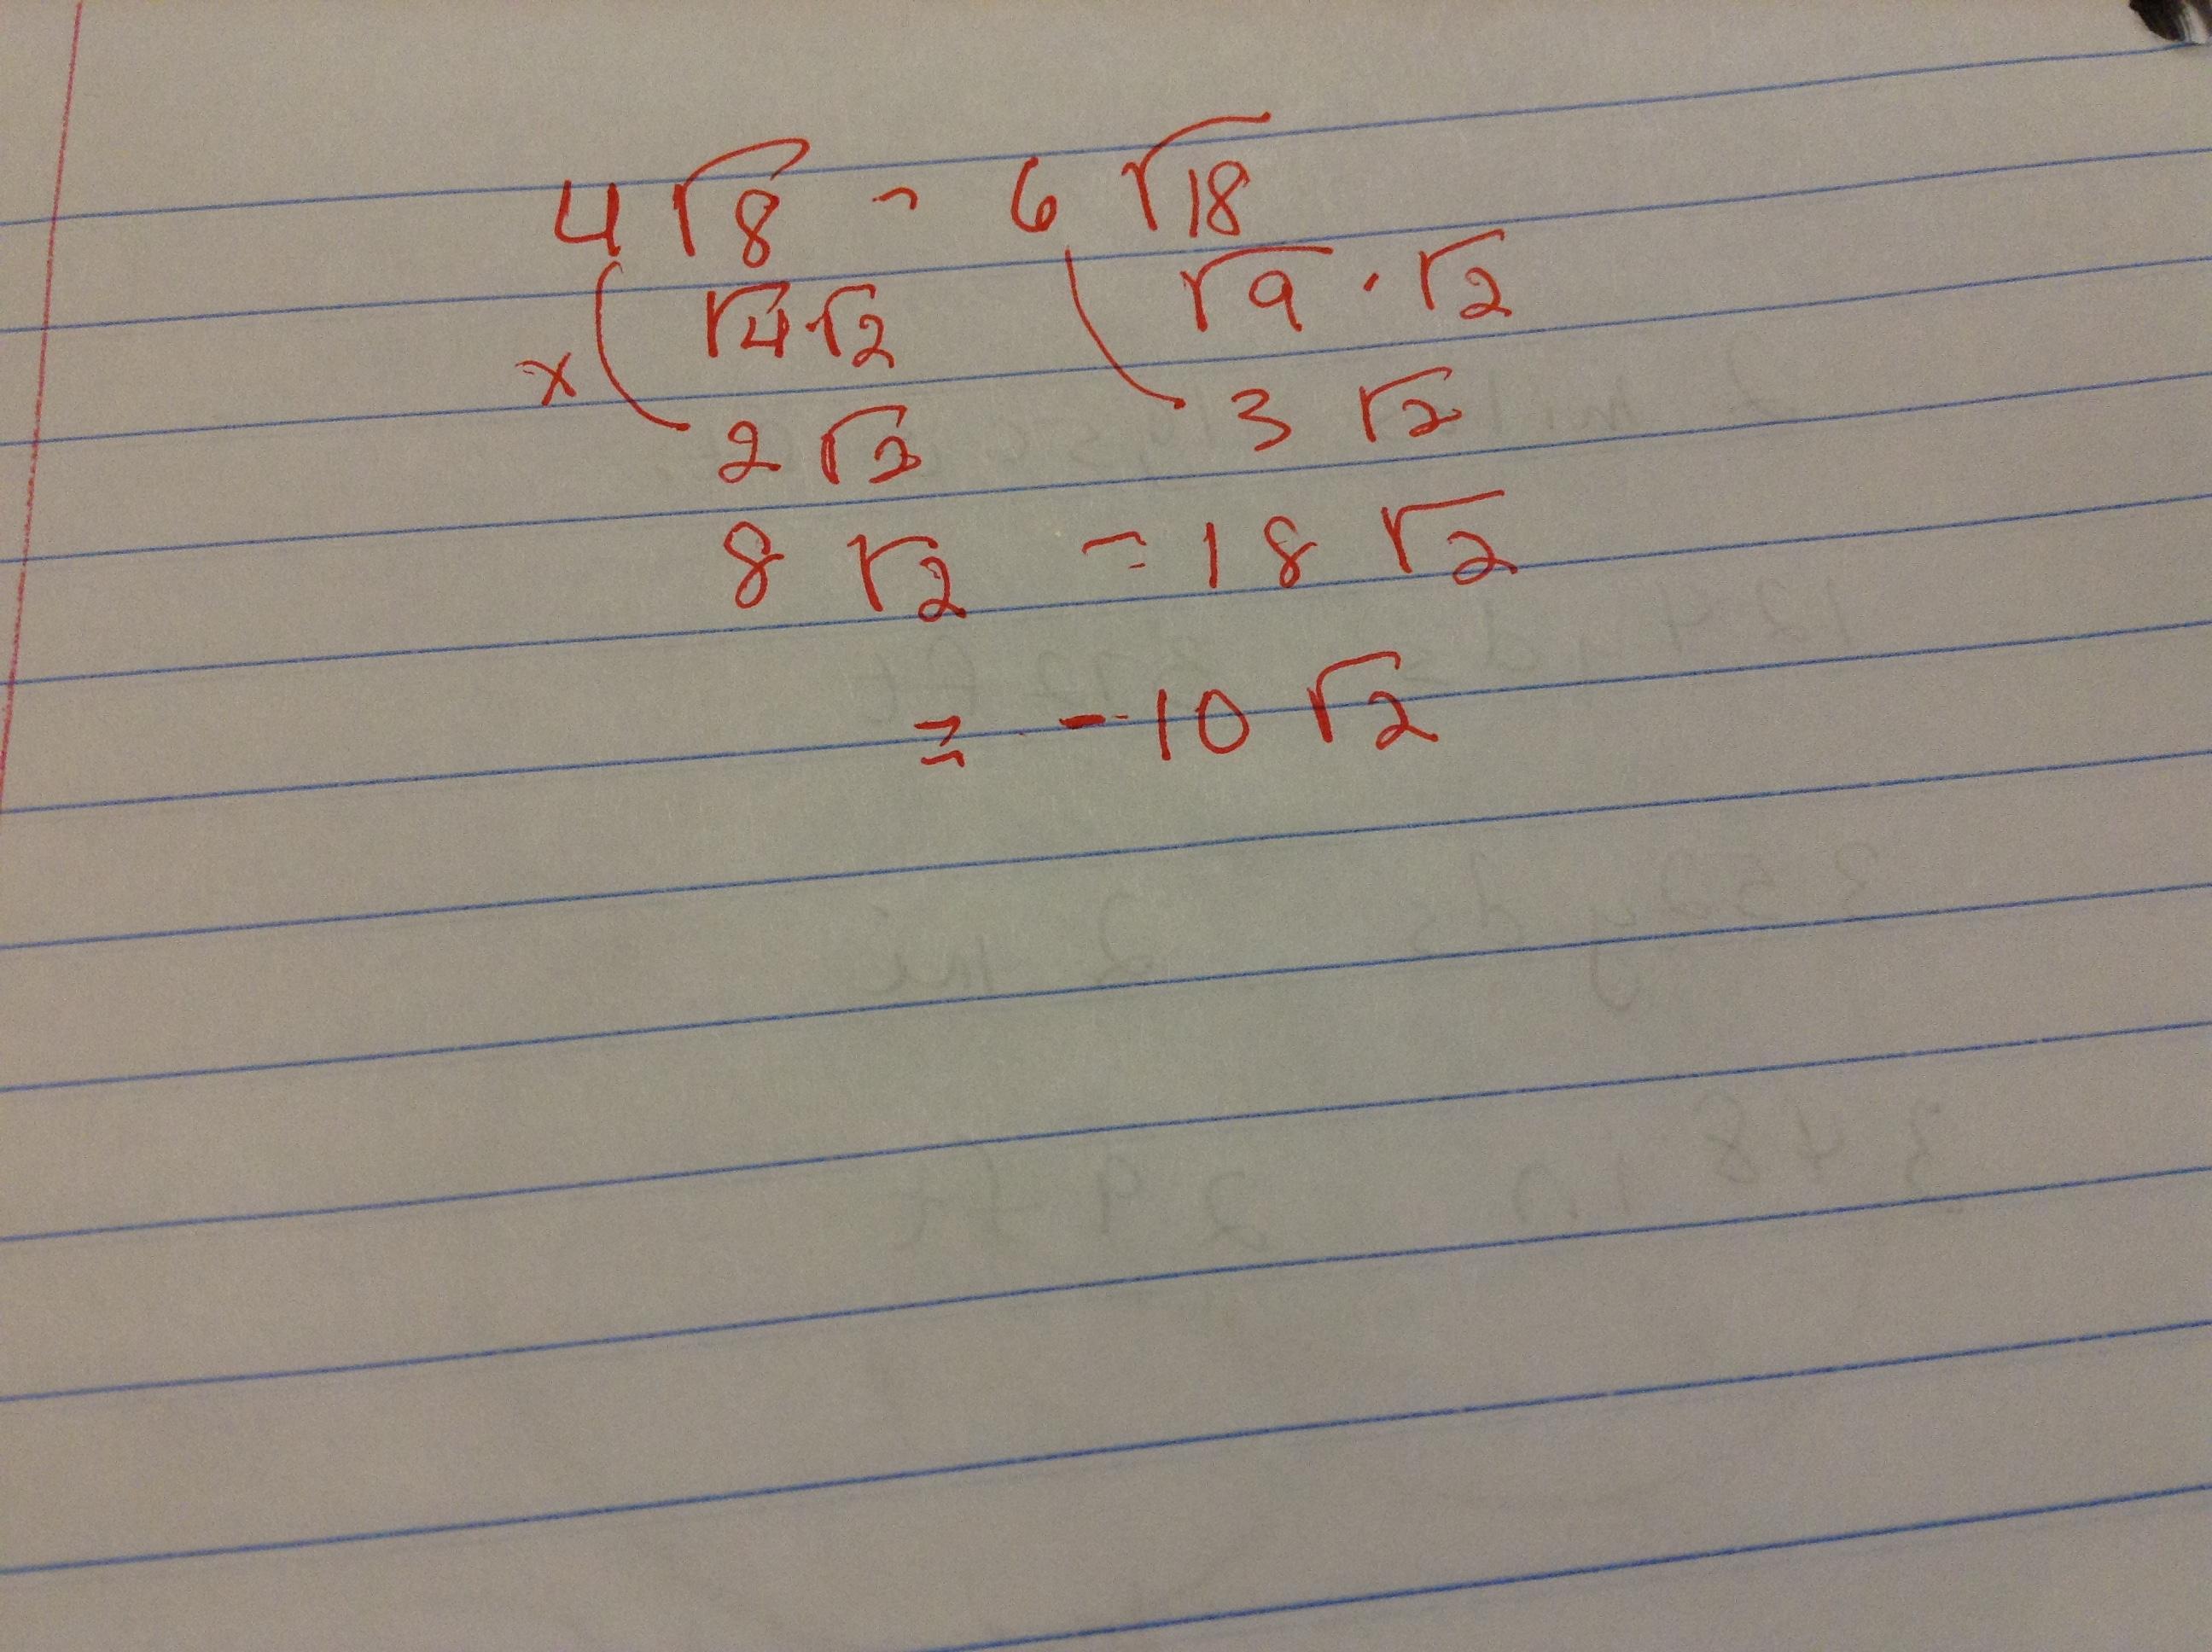 4√8 - 6√18
√4·√2 √9 · √2
x 2√2 3√2
8√2 = 18√2
= -10√2